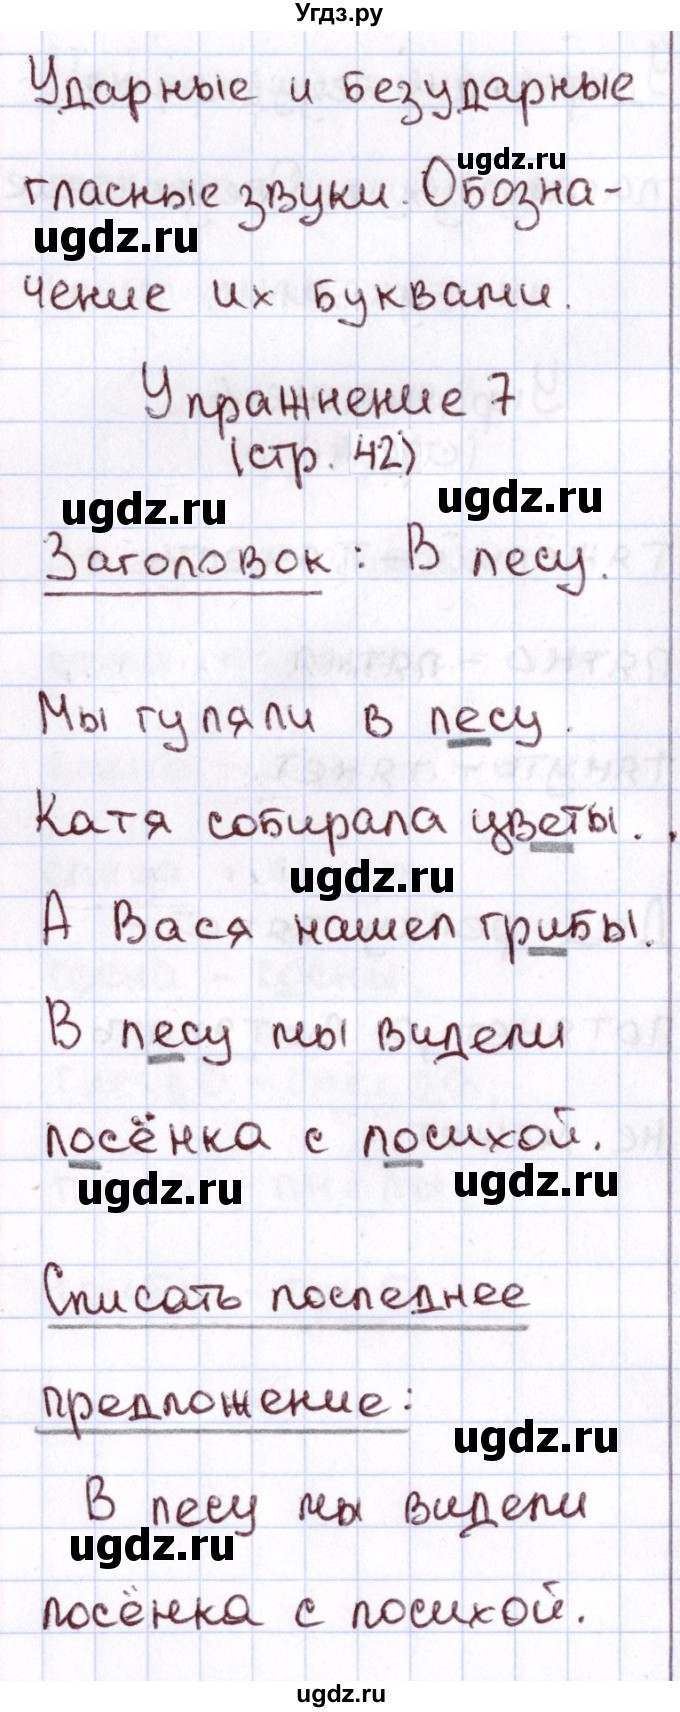 Угдз.ру
Ударные и безударные
ugdz.ru
гласные звуки. Обозна-
ugdz.ru
чение их буквами.
Упражнение 7
(стр. 42)
ugdz.ru
ugdz.ru
Заголовок: В лесу.
Мы гуляли в лесу.
Катя собирала цветы.
ugdz.ru
А Вася нашел грибы.
В лесу мы видели
лосёнка с лосихой.
ugdz.ru
ugdz.ru
Списать последнее
предложение:
ugdz.ru
В лесу мы видели
ugdz.ru
лосёнка с лосихой.
ugdz.ru